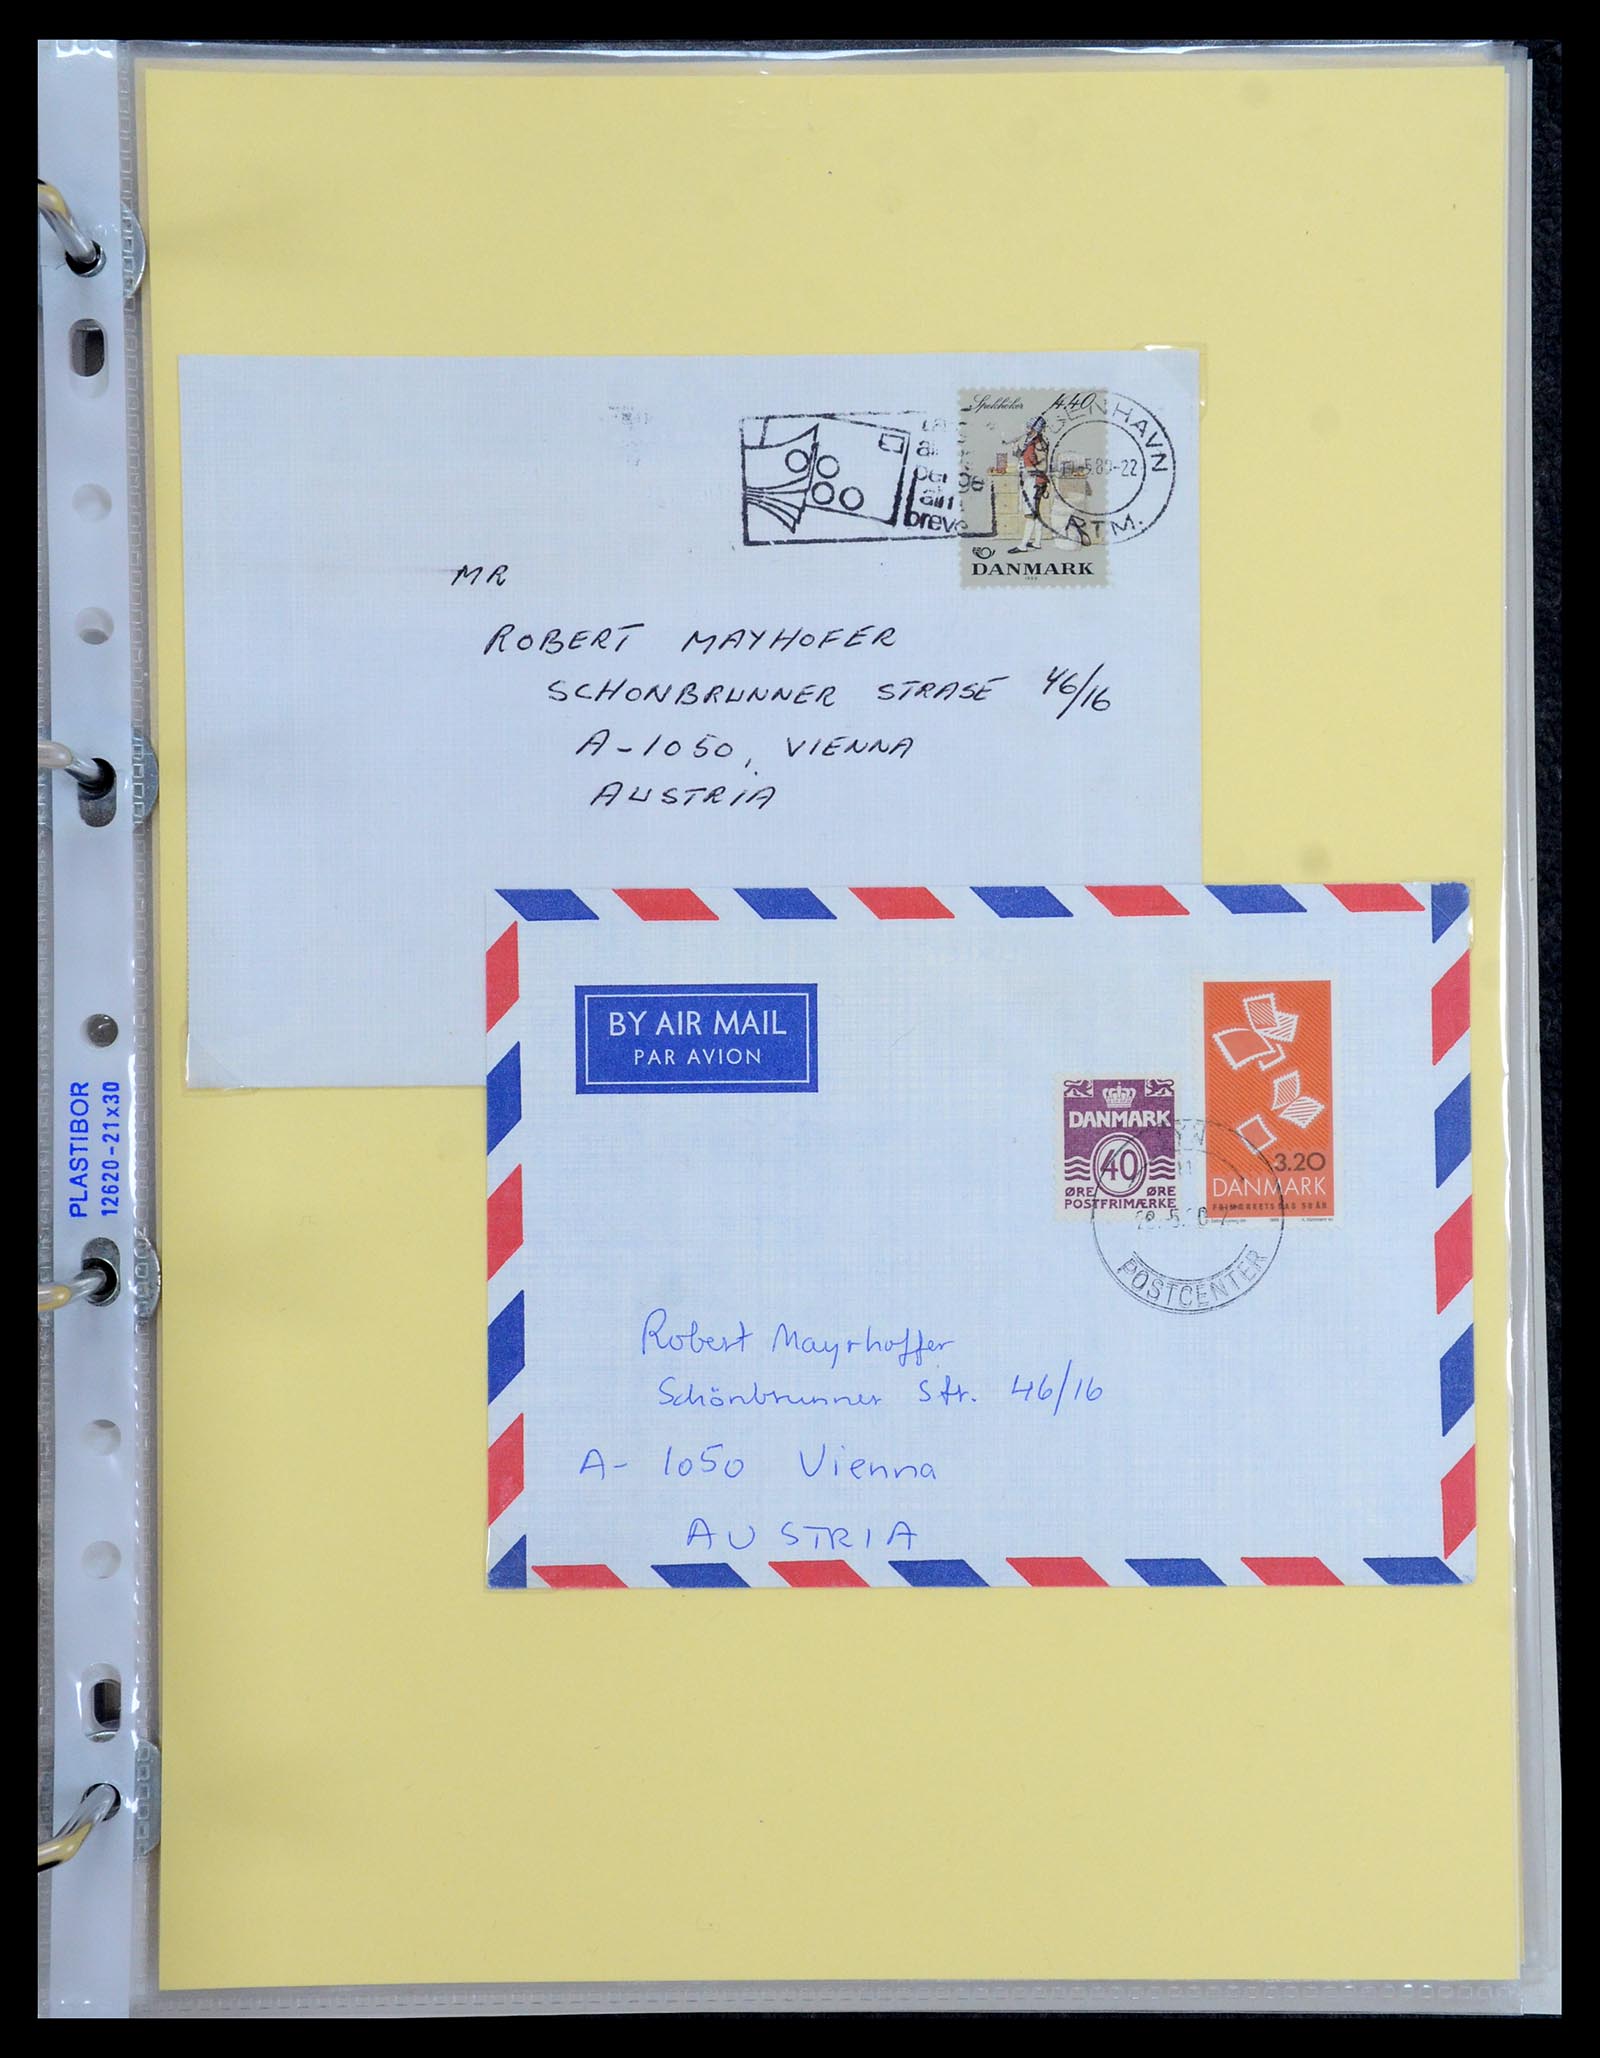 Spekhøker 4.40
KØBENHAVN
.5.89-22
RTM.
breve
DANMARK
MR
ROBERT MAYHOFER
SCHONBRUNNER STRASE 46/16
A-1050, VIENNA
AUSTRIA
BY AIR MAIL
PAR AVION
DANMARK
40
ØRE ØRE
POSTFRIMÆRKE
3.20
DANMARK
POSTCENTER
Robert Mayrhoffer
Schönbrunner Str. 46/16
A- 1050 Vienna
AUSTRIA
PLASTIBOR
12620-21x30